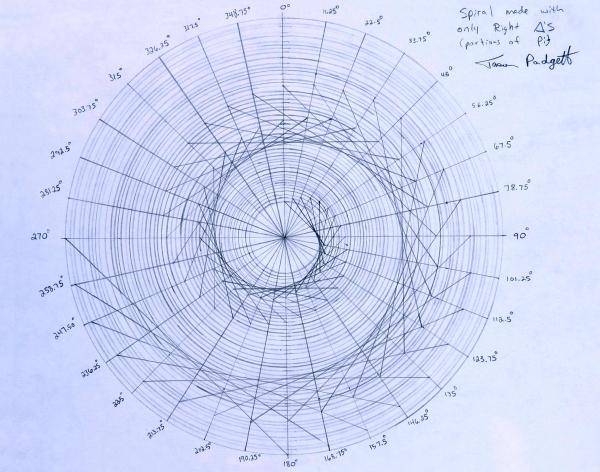 Spiral made with
only Right Δ'S
(portions of Pi)
Jason Padgett
0°
11.25°
22.5°
33.75°
45°
56.25°
67.5°
78.75°
90°
101.25°
112.5°
123.75°
135°
146.25°
157.5°
168.75°
180°
190.25°
202.5°
213.75°
225°
236.25°
247.50°
258.75°
270°
281.25°
292.5°
303.75°
315°
326.25°
348.75°